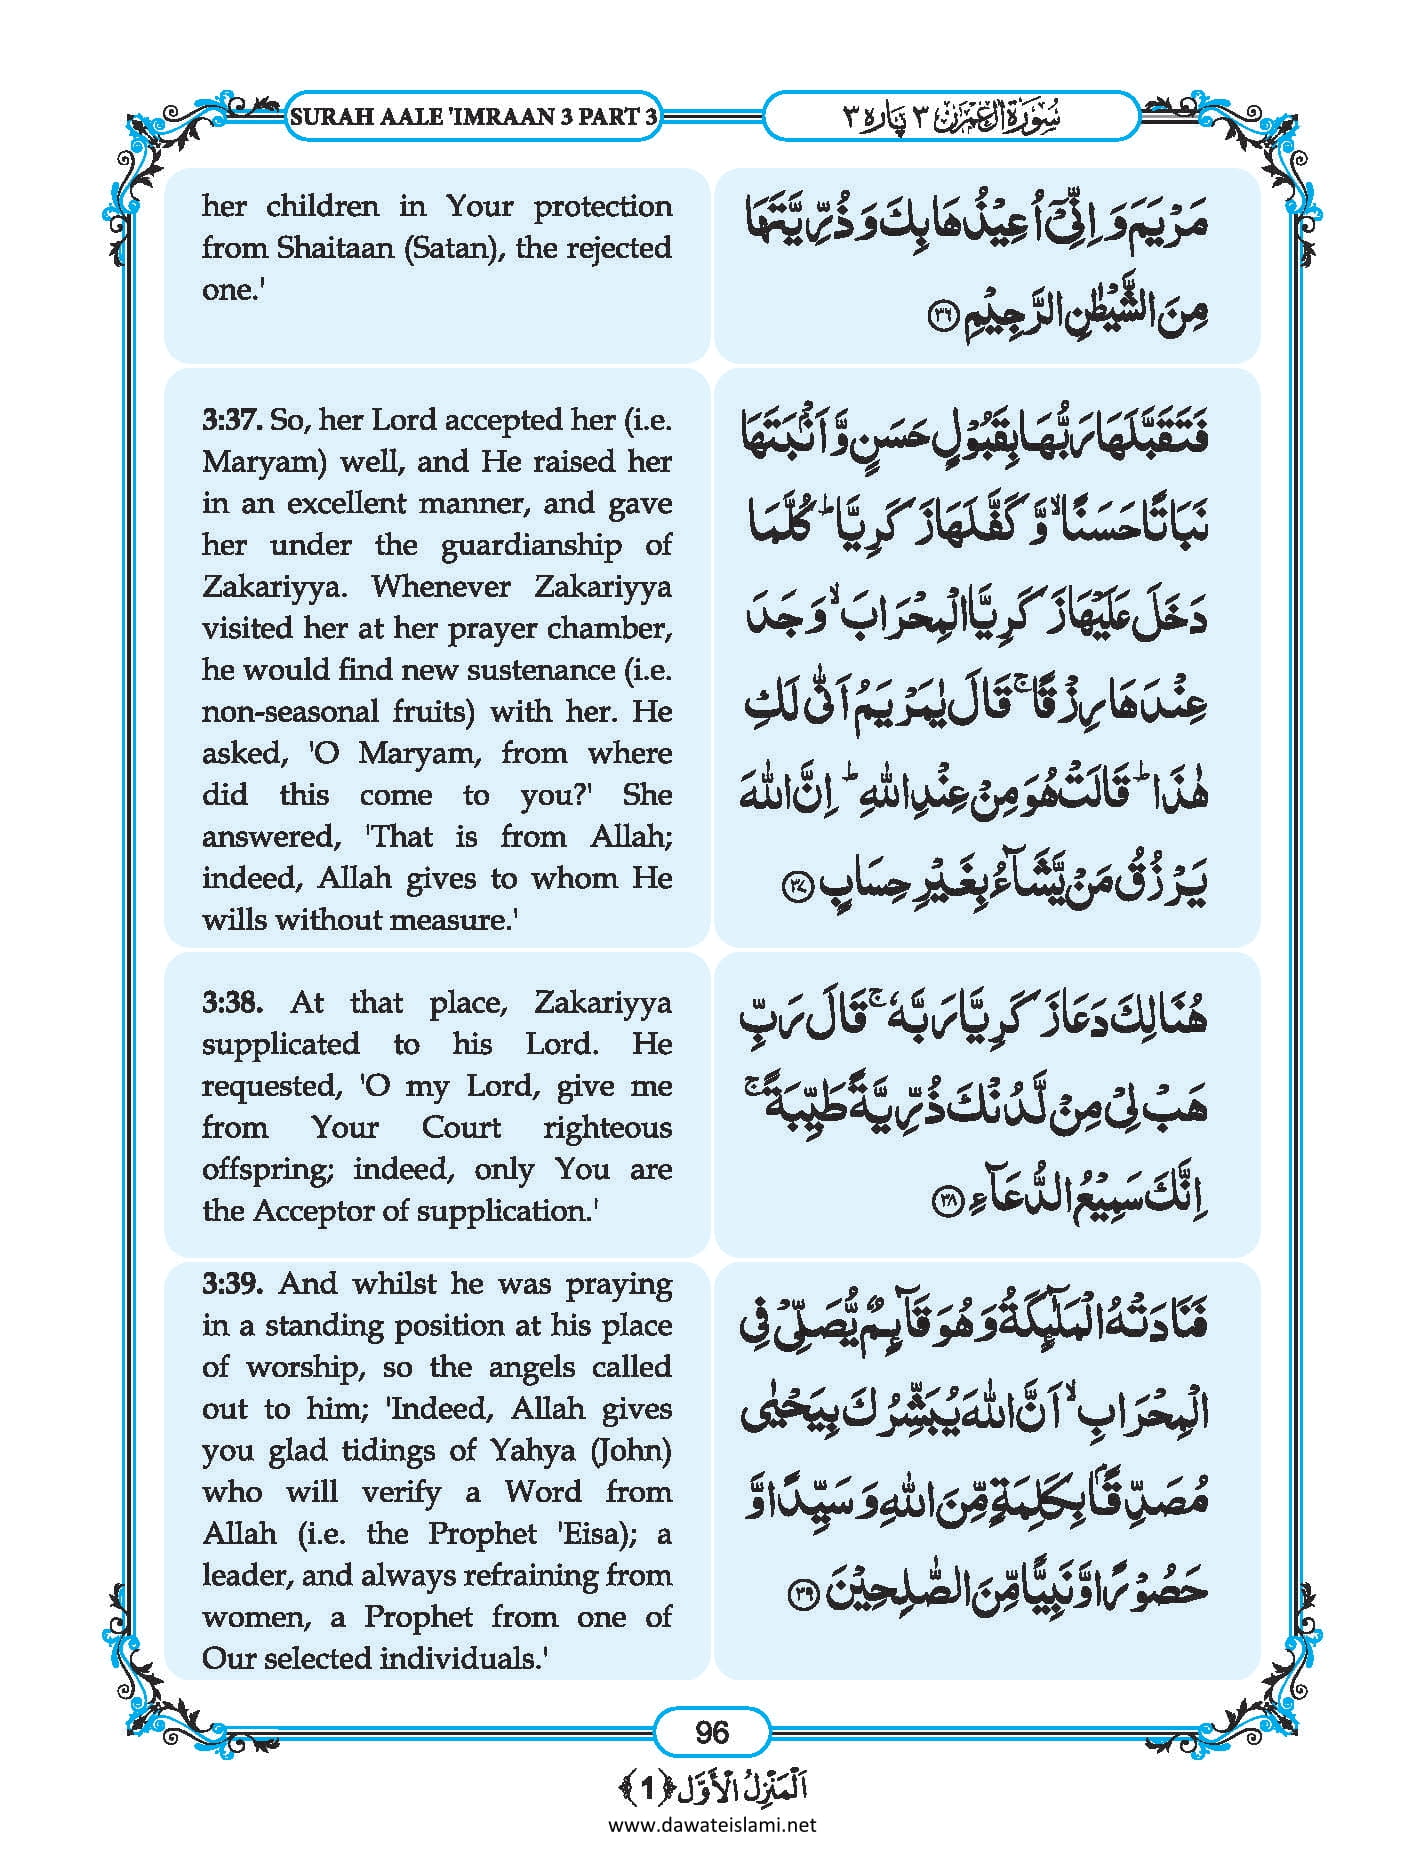 SURAH AALE 'IMRAAN 3 PART 3
سُوْرَةُ اٰلِ عِمْرٰن ٣ پَاره ٣
her children in Your protection
from Shaitaan (Satan), the rejected
one.'
مَرْيَمَ وَ اِنِّيْۤ اُعِيْذُهَا بِكَ وَ ذُرِّيَّتَهَا
مِنَ الشَّيْطٰنِ الرَّجِيْمِ ﴿۳۶﴾
3:37. So, her Lord accepted her (i.e.
Maryam) well, and He raised her
in an excellent manner, and gave
her under the guardianship of
Zakariyya. Whenever Zakariyya
visited her at her prayer chamber,
he would find new sustenance (i.e.
non-seasonal fruits) with her. He
asked, 'O Maryam, from where
did this come to you?' She
answered, 'That is from Allah;
indeed, Allah gives to whom He
wills without measure.'
فَتَقَبَّلَهَا رَبُّهَا بِقَبُوْلٍ حَسَنٍ وَّ اَنْۢبَتَهَا
نَبَاتًا حَسَنًا ۙ وَّ كَفَّلَهَا زَكَرِيَّا ؕ كُلَّمَا
دَخَلَ عَلَيْهَا زَكَرِيَّا الْمِحْرَابَ ۙ وَجَدَ
عِنْدَهَا رِزْقًا ۚ قَالَ يٰمَرْيَمُ اَنّٰى لَكِ
هٰذَا ؕ قَالَتْ هُوَ مِنْ عِنْدِ اللّٰهِ ؕ اِنَّ اللّٰهَ
يَرْزُقُ مَنْ يَّشَآءُ بِغَيْرِ حِسَابٍ ﴿۳۷﴾
3:38. At that place, Zakariyya
supplicated to his Lord. He
requested, 'O my Lord, give me
from Your Court righteous
offspring; indeed, only You are
the Acceptor of supplication.'
هُنَالِكَ دَعَا زَكَرِيَّا رَبَّهٗ ۚ قَالَ رَبِّ
هَبْ لِيْ مِنْ لَّدُنْكَ ذُرِّيَّةً طَيِّبَةً ۚ
اِنَّكَ سَمِيْعُ الدُّعَآءِ ﴿۳۸﴾
3:39. And whilst he was praying
in a standing position at his place
of worship, so the angels called
out to him; 'Indeed, Allah gives
you glad tidings of Yahya (John)
who will verify a Word from
Allah (i.e. the Prophet 'Eisa); a
leader, and always refraining from
women, a Prophet from one of
Our selected individuals.'
فَنَادَتْهُ الْمَلٰٓئِكَةُ وَ هُوَ قَآئِمٌ يُّصَلِّيْ فِي
الْمِحْرَابِ ۙ اَنَّ اللّٰهَ يُبَشِّرُكَ بِيَحْيٰى
مُصَدِّقًۢا بِكَلِمَةٍ مِّنَ اللّٰهِ وَ سَيِّدًا وَّ
حَصُوْرًا وَّ نَبِيًّا مِّنَ الصّٰلِحِيْنَ ﴿۳۹﴾
96
اَلْمَنْزِلُ الْاَوَّل ﴿1﴾
www.dawateislami.net